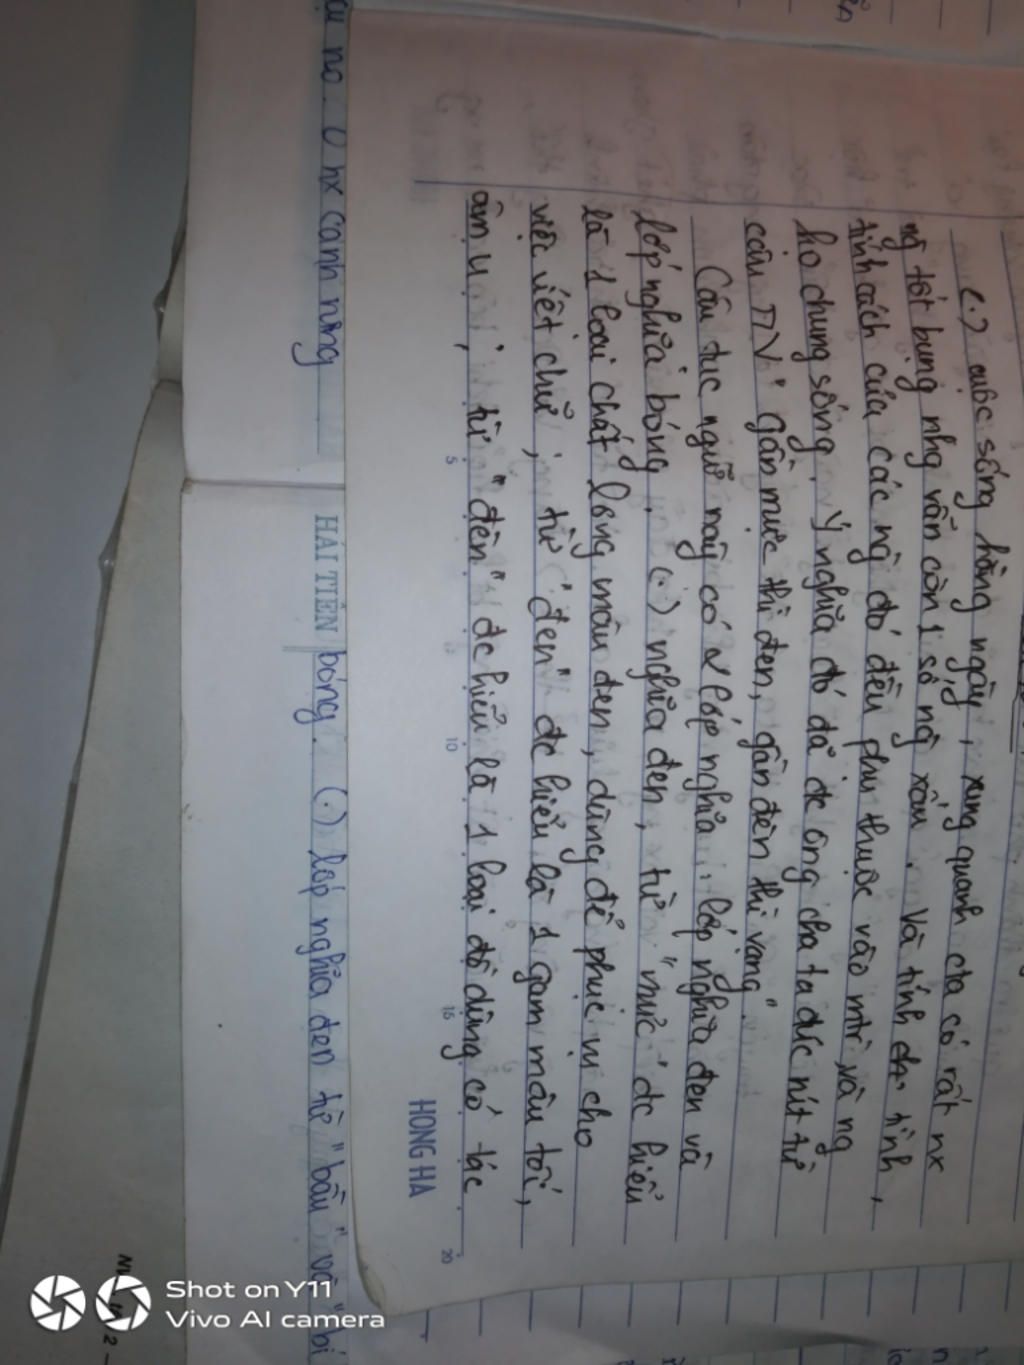 (.) cuộc sống hằng ngày, xung quanh cta có rất nx
ng tốt bụng nhg vẫn còn 1 số ng xấu. Và tính chỉ tình,
tính cách của các ng đó đều phụ thuộc vào mtr và ng
họ chung sống. Ý nghĩa đó đã đc ông cha ta đúc rút từ
câu TN "gần mực thì đen, gần đèn thì rạng".
Câu tục ngữ này có 2 lớp nghĩa: lớp nghĩa đen và
lớp nghĩa bóng. (.) nghĩa đen, từ "mực" đc hiểu
là 1 loại chất lỏng màu đen, dùng để phục vụ cho
việc viết chữ; từ "đen" đc hiểu là 1 gam màu tối,
âm u; từ "đèn" đc hiểu là 1 loại đồ dùng có tác
5 10 15 20
HONG HA
no. U nx cạnh
HẢI TIẾN
bóng. (.) lớp nghĩa đen từ "bầu" và "bí
Shot on Y11
Vivo AI camera